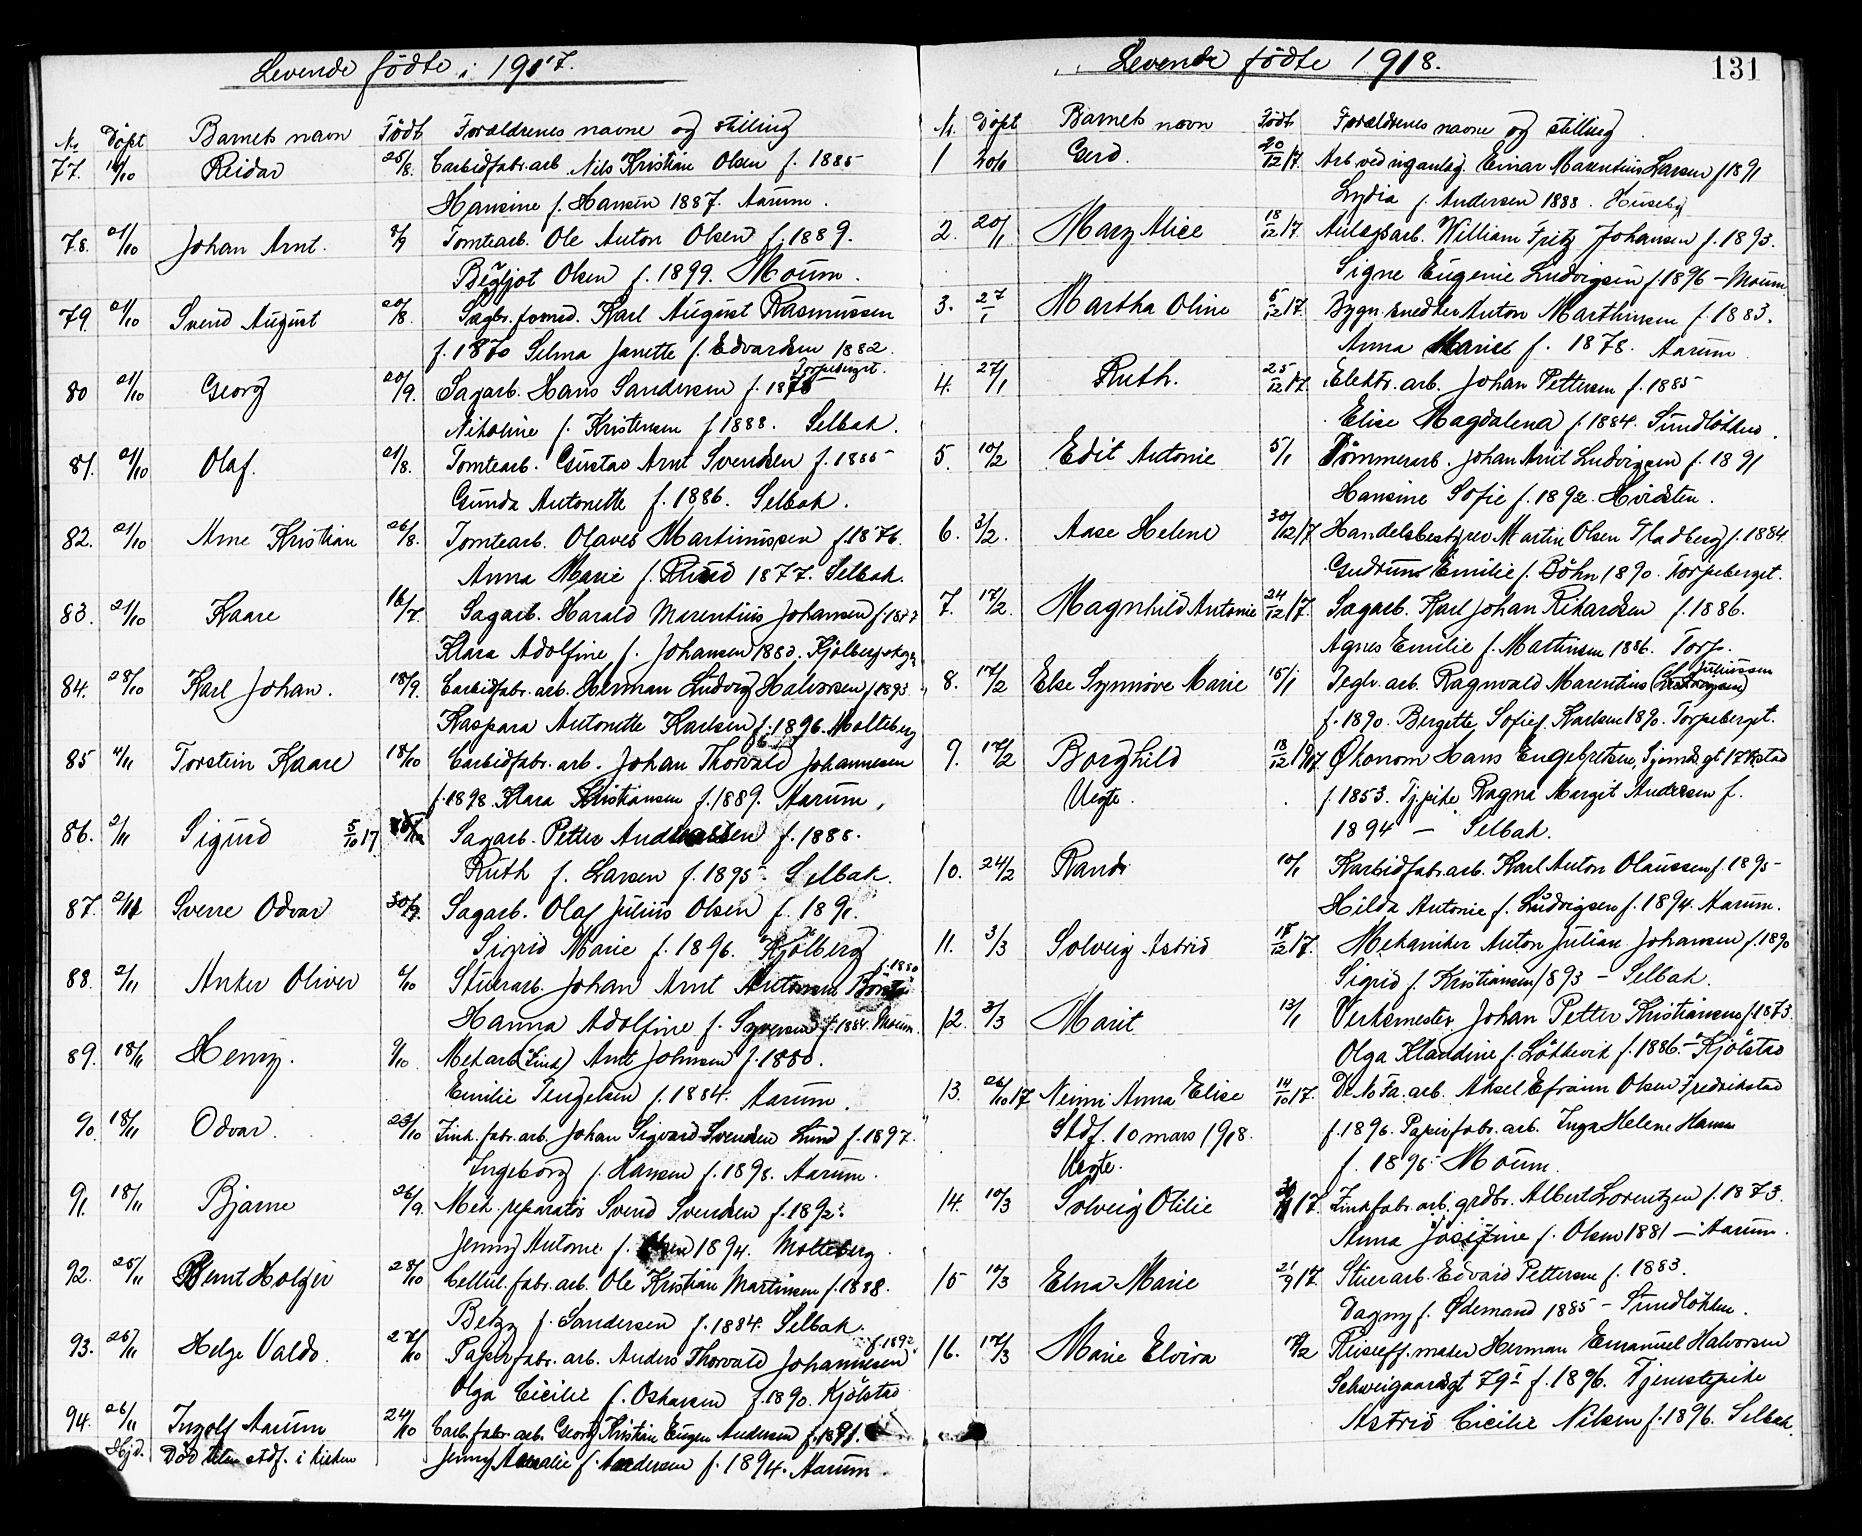 Levende födte i 1917.
No Döpt Barnets navn Födt Forældrenes navne og stilling
77. 14/10 Reidar 25/8. Carbidfabr. arb. Nils Kristian Olsen f. 1885
Hansine f. Hansen 1887. Aarum.
78. 21/10 Johan Arnt. 8/9 Tomtearb. Ole Anton Olsen f. 1889.
Olsen f. 1899. Moum.
79. 21/10 Svend August 20/8. Sagbr. formd. Karl August Rasmussen
f. 1870 Selma Janette f. Edvardsen 1882.
Torpeberget.
80 21/10 Georg 20/9. Sagarb. Hans Sandersen f. 1875
Nikoline f. Kristensen f 1888. Selbak.
81. 21/10 Olaf. 21/8. Tomtearb. Gustav Arnt Svendsen f. 1885
Gunda Antonette f. 1886. Selbak.
82. 21/10 Arne Kristian 26/8. Tomtearb. Olaves Martinussen f. 1876.
Anna Marie f. Ruud 1877. Selbak.
83. 21/10 Kaare 16/7. Sagarb. Harald Marentius Johansen f. 1877
Klara Adolfine f. Johansen 1880.
84. 28/10 Karl Johan. 18/9. Carbidfabr. arb. Herman Ludvig Halvorsen f 1893.
Kaspara Antonette Karlsen f. 1896. Molteberg
85 4/11 Torstein Kaare 18/10 Carbidfabr. arb. Johan Thorvald Johannesen
f. 1898. Klara Kristiansen f. 1889. Aarum.
86. 2/11 Sigurd 5/10 17 Sagarb. Petter Andreassen f. 1888.
Ruth f. Larsen f. 1895. Selbak.
87. 2/11 Sverre Odvar 30/9. Sagarb. Olaf Julius Olsen f. 1891.
Sigrid Marie f. 1896. Kjölberg
88. 2/11 Anker Oliver 6/10 Stuerarb. Johan Arnt Antonsen f. 1880
Hanna Adolfine f. Syversen f. 1884. Moum.
89. 18/11 Henry. 9/10. Mek arb (Zink) Arnt Johnsen f. 1880.
Emilie Tengelsen f. 1884. Aarum.
90. 18/11 Odvar. 23/10 Zink. fabr. arb. Johan Sigvard Svendsen Lund f. 1897.
Ingeborg f. Hansen f. 1898. Aarum.
91. 18/11 Bjarne 26/9. Mek. reparatör Svend Svendsen f. 1892.
Jenny Antonie f. Olsen 1894. Molteberg.
92. 25/11 Bernt Holger 28/10 Cellul. fabr. arb. Ole Kristian Martinsen f. 1888.
Betzy f. Sandersen f. 1884. Selbak.
93. 25/11 Helge Valdo. 27/10 Papirfabr. arb. Anders Thorvald Johannesen f. 1892
Olga Cicilie f. Oskarsen f. 1890. Kjölstad
94. 26/11 Ingolf Aarum 24/10 Carb. fabr. arb. Georg Kristian Eugen Andersen f. 1891.
Hjd. Död uten stdf. i kirken Jenny Amalie f. Andersen f. 1894. Aarum.
Levende födte 1918.
131
No. Döpt Barnets navn Födt Forældrenes navne og stilling
1 20/1 Gerd. 20/12 17. Arb. ved Einar Marentius Larsen f 1891
Lydia f. Andersen 1888. Huseby
2. 20/1 Mary Alice 18/12 17. Anlegsarb. William Fritz Johansen f. 1893.
Signe Eugenie Ludvigsen f 1896 – Moum.
3. 27/1 Martha Oline 5/12 17. Bygn. snedker Anton Marthinsen f. 1883.
Anna Marie f. 1878. Aarum
4. 27/1 Ruth. 25/12 17. Elektr. arb. Johan Pettersen f. 1885
Elise Magdalena f. 1884. Sundlökken.
5. 10/2 Edit Antonie 5/1 Tömmerarb. Johan Arnt Ludvigsen f. 1891
Hansine Sofie f. 1892. Hvidsten.
6. 3/2. Aase Helene 30/12 17 Handelsbestyrer Martin Olsen Fladberg f. 1884.
Gudrun Emilie f. Böhn 1890. Torpeberget.
7. 17/2. Magnhild Antonie 24/12 17. Sagarb. Karl Johan Rikardsen f. 1886.
Agnes Emilie f. Martinsen 1886. Torp.
8. 17/2 Else Synnöve Marie 15/1 Teglv. arb. Ragnvald Marentius Juliussen
f. 1890. Bergette Sofie f. Karlsen 1890. Torpeberget.
9. 17/2 Borghild 13/12 1917 Økonom Hans Engebretsen,
Uegte. f. 1853. Tj. pike Ragna Margit Andersen f.
1894 – Selbak.
10. 24/2 Randi 10/1 Karbidfabr. arb. Karl Anton Olaussen f. 1895
Hilda Antonie f. Ludvigsen f. 1894. Aarum.
11. 3/3 Solveig Astrid 18/12 17. Mekaniker Anton Julian Johansen f. 1890
Sigrid f. Kristiansen 1893 – Selbak.
12. 3/3 Marit 13/1 Verksmester Johan Petter Kristiansen f. 1873.
Olga Klaudine f. Lökkevik f. 1886. – Kjölstad
13. 26/10 17 Neimi Anna Elise 14/10 17. De No Fa. arb. Aksel Efraim Olsen Fredrikstad
Stdf. 10 mars 1918. f. 1896. Papirfabr. arb. Inga Helene Hansen
Uegte. f. 1896. Moum.
14. 10/3 Solveig Otilie 17. Zinkfabr. arb. grdbr. Albert Lorentzen f. 1873.
Anna Josefine f. Olsen 1881 – Aarum.
15 10/3 Elna Marie 21/9 17. Stuerarb. Edvard Pettersen f. 1883.
Dagny f. Ødemand 1885 – Sundlökken.
16. 17/3 Marie Elvira 17/2 Reiseff. maker Herman Emanuel Halvorsen
Schweigaardsgt 79 I f. 1896. Tjenestepike
Astrid Cicilie Nilsen f. 1896. Selbak.